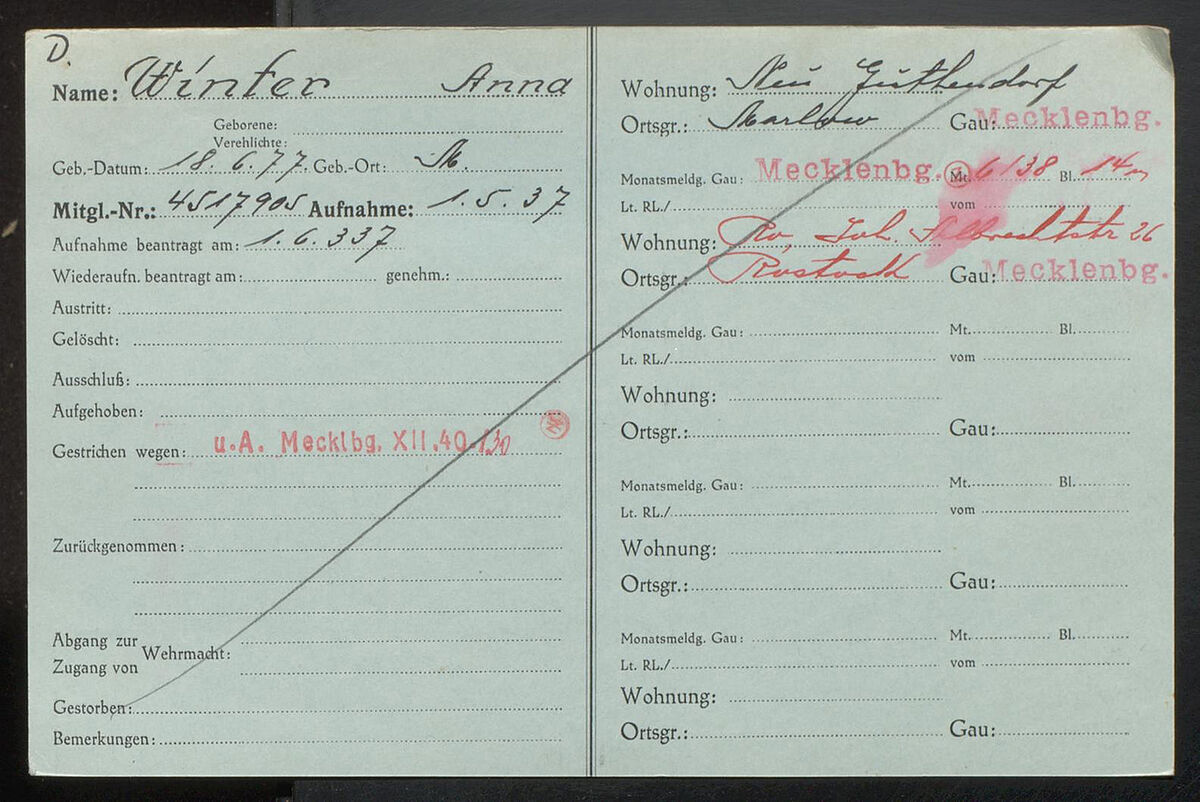 D.
Name: Winter Anna
Geborene:
Verehlichte:
Geb.-Datum: 18.6.77. Geb.-Ort: M.
Mitgl.-Nr.: 4517905 Aufnahme: 1.5.37
Aufnahme beantragt am: 1.6.337
Wiederaufn. beantragt am: genehm.:
Austritt:
Gelöscht:
Ausschluß:
Aufgehoben:
Gestrichen wegen: u.A. Mecklbg. XII.40.130
Zurückgenommen:
Abgang zur
Zugang von
Wehrmacht:
Gestorben:
Bemerkungen:
Wohnung: Neu Guthendorf
Ortsgr.: Marlow Gau: Mecklenbg.
Monatsmeldg. Gau: Mecklenbg. Mt. 6/38 Bl. 14
Lt. RL./ vom
Wohnung: Ro, Joh. Albrechtstr 26
Ortsgr.: Rostock Gau: Mecklenbg.
Monatsmeldg. Gau: Mt. Bl.
Lt. RL./ vom
Wohnung:
Ortsgr.: Gau:
Monatsmeldg. Gau: Mt. Bl.
Lt. RL./ vom
Wohnung:
Ortsgr.: Gau:
Monatsmeldg. Gau: Mt. Bl.
Lt. RL./ vom
Wohnung:
Ortsgr.: Gau: